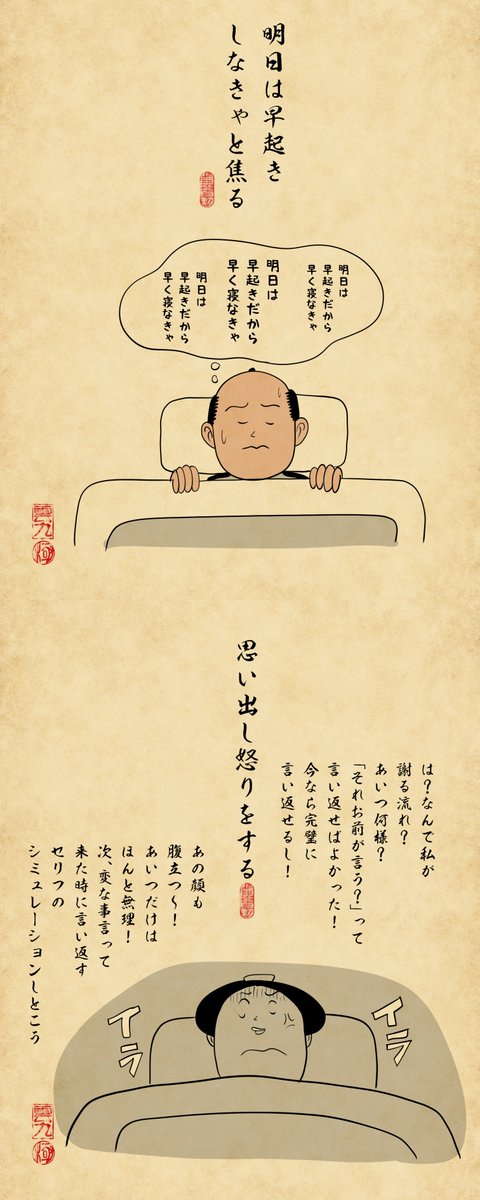 明日は早起き
しなきゃと焦る
明日は
早起きだから
早く寝なきゃ
明日は
早起きだから
早く寝なきゃ
明日は
早起きだから
早く寝なきゃ
思い出し怒りをする
は？なんで私が
謝る流れ？
あいつ何様？
「それお前が言う？」って
言い返せばよかった！
今なら完璧に
言い返せるし！
あの顔も
腹立つ〜！
あいつだけは
ほんと無理！
次、変な事言って
来た時に言い返す
セリフの
シミュレーションしとこう
イラ
イラ